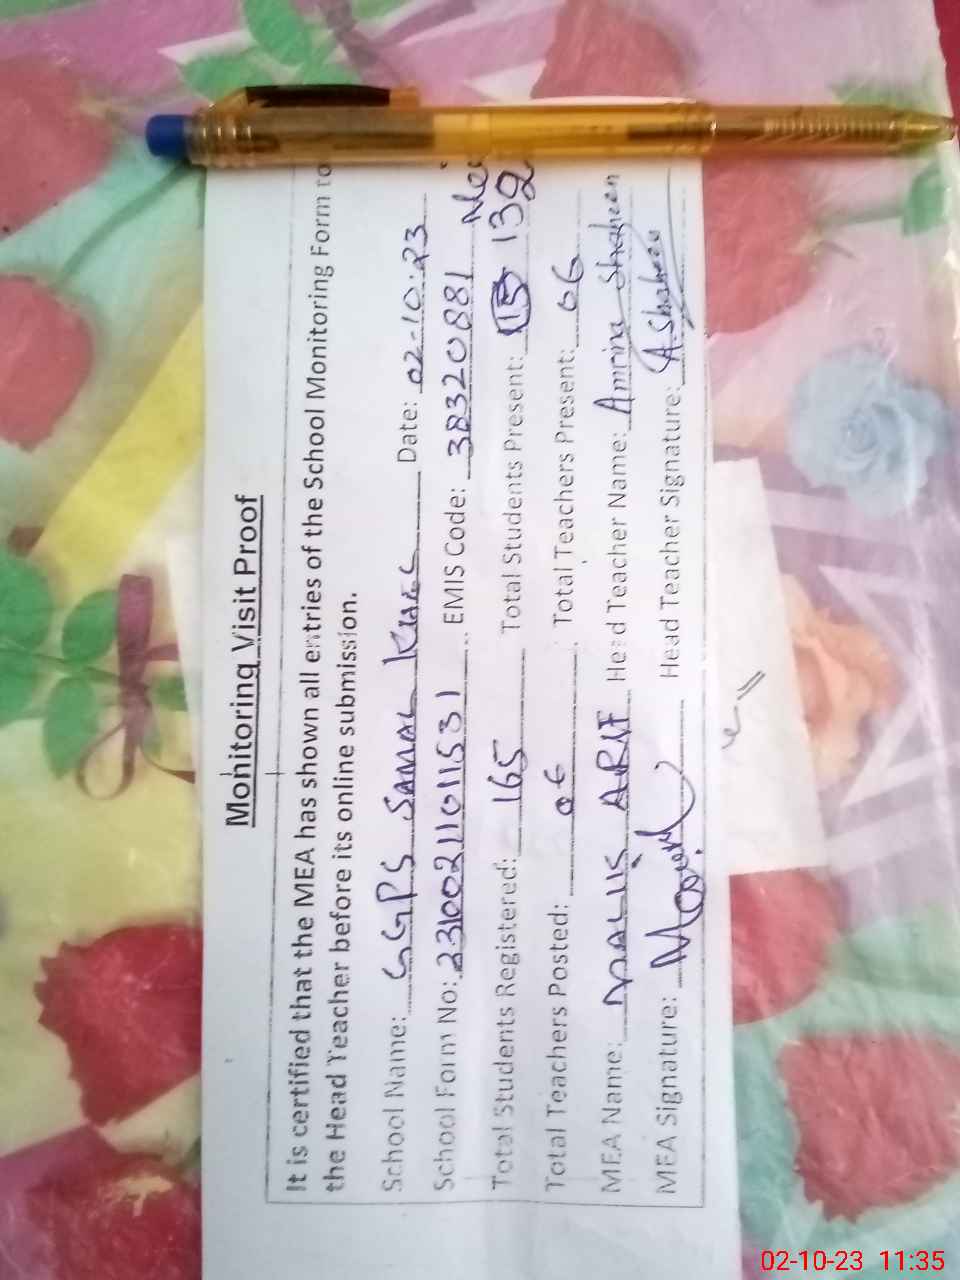 Monitoring Visit Proof
It is certified that the MEA has shown all entries of the School Monitoring Form to
the Head Teacher before its online submission.
School Name: GGPS SAMAL KHEL Date: 02-10-23
School Form No: 231002110111531 EMIS Code: 38320881
Total Students Registered: 165 Total Students Present: 132
Total Teachers Posted: 06 Total Teachers Present: 06
MEA Name: ARIF Head Teacher Name: Amrina Shaheen
MEA Signature: Head Teacher Signature: A.Shaheen
02-10-23 11:35